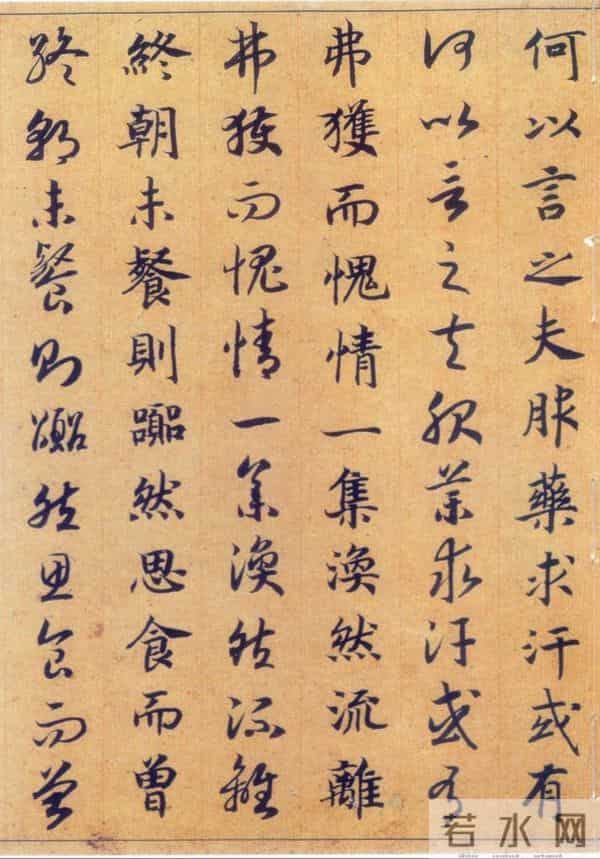 何以言之夫服藥求汗或有
何以言之夫服藥求汗或有
弗獲而愧情一集渙然流離
弗獲而愧情一集渙然流離
終朝未餐則囂然思食而曾
終朝未餐則囂然思食而曾
若水网